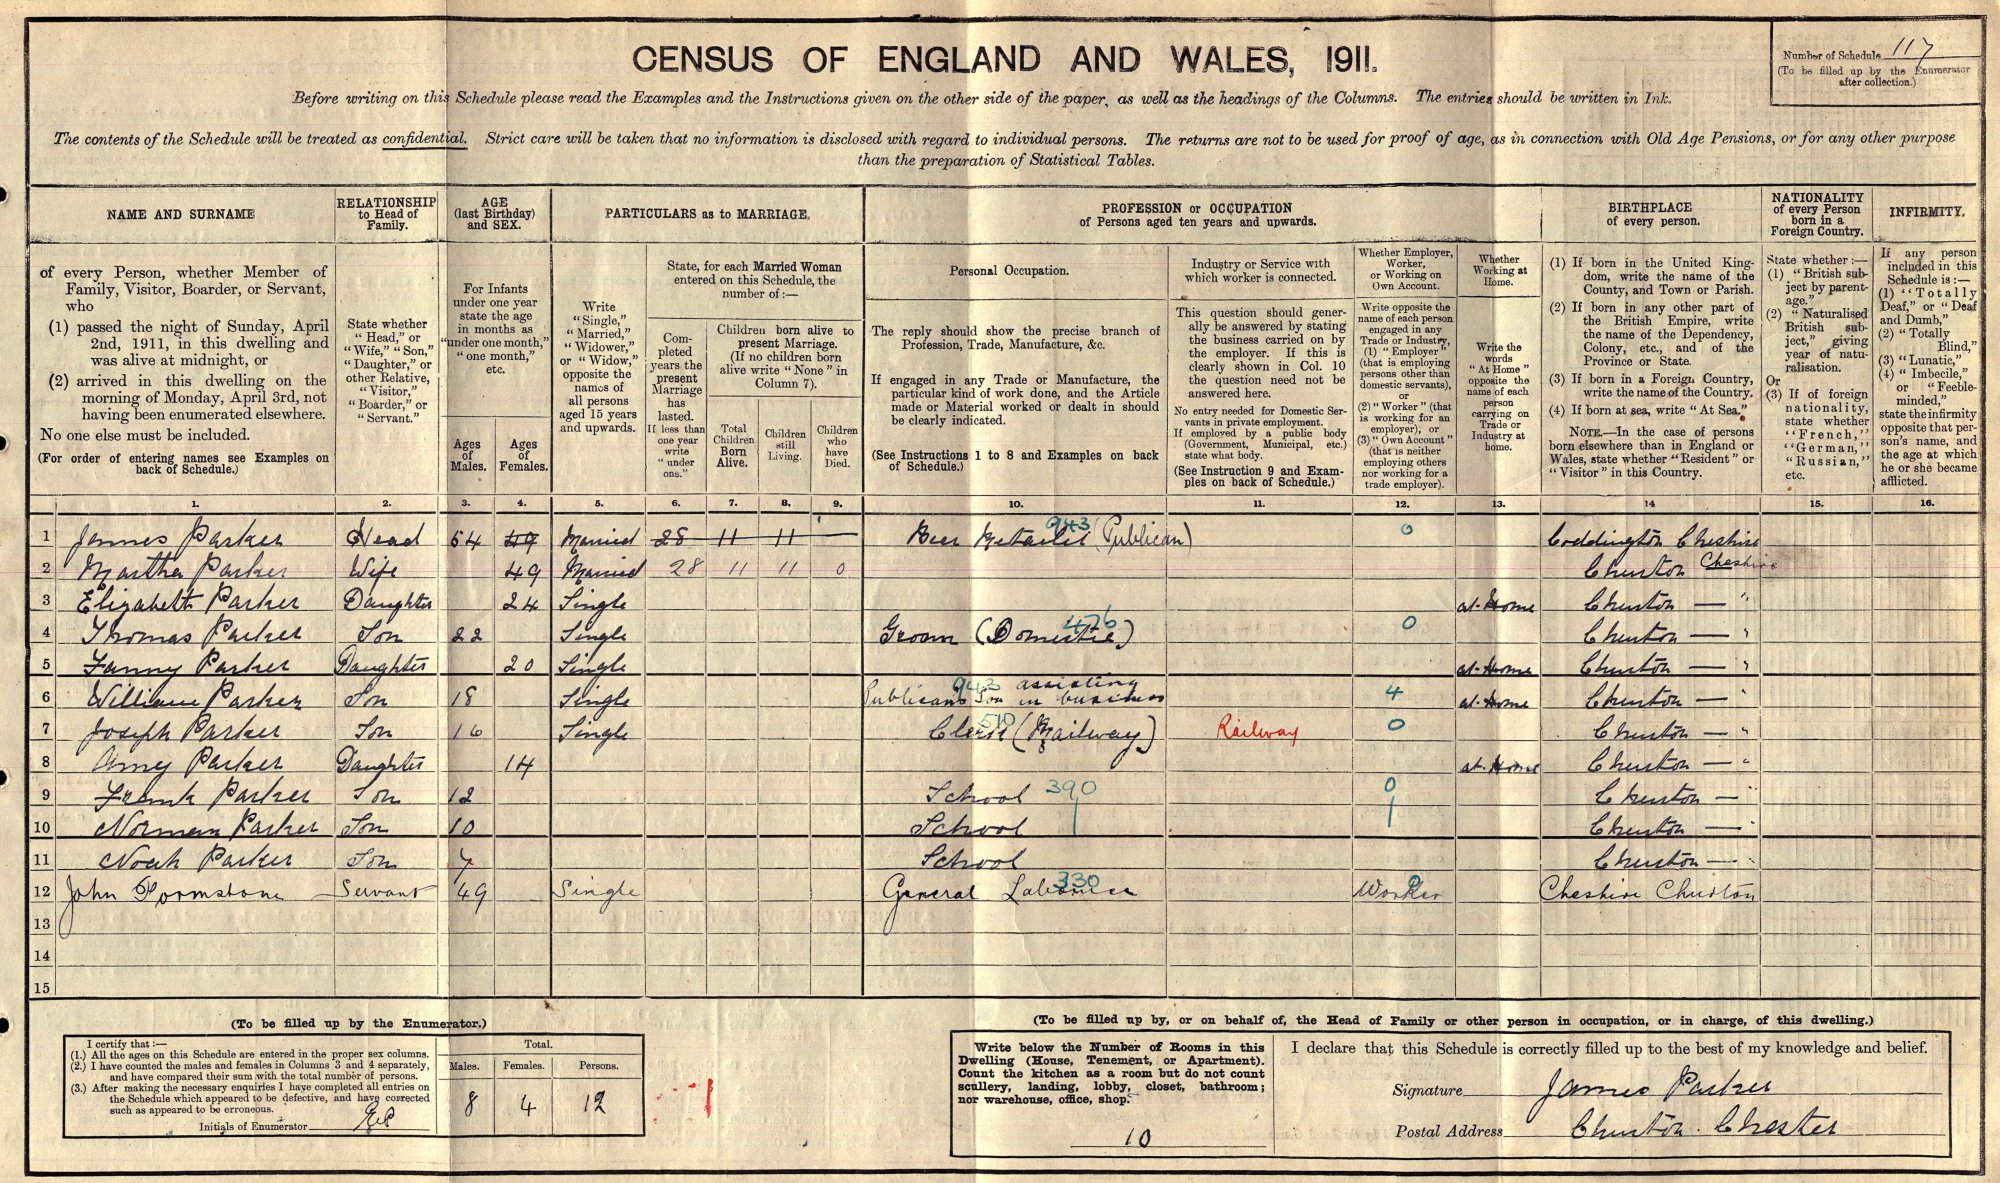 CENSUS OF ENGLAND AND WALES, 1911.
Number of Schedule 117
(To be filled up by the Enumerator
after collection.)
Before writing on this Schedule please read the Examples and the Instructions given on the other side of the paper, as well as the headings of the Columns. The entries should be written in Ink.
The contents of the Schedule will be treated as confidential. Strict care will be taken that no information is disclosed with regard to individual persons. The returns are not to be used for proof of age, as in connection with Old Age Pensions, or for any other purpose
than the preparation of Statistical Tables.
NAME AND SURNAME
of every Person, whether Member of
Family, Visitor, Boarder, or Servant,
who
(1) passed the night of Sunday, April
2nd, 1911, in this dwelling and
was alive at midnight, or
(2) arrived in this dwelling on the
morning of Monday, April 3rd, not
having been enumerated elsewhere.
No one else must be included.
(For order of entering names see Examples on
back of Schedule.)
RELATIONSHIP
to Head of
Family.
State whether
"Head," or
"Wife," "Son,"
"Daughter," or
other Relative,
"Visitor,"
"Boarder," or
"Servant."
AGE
(last Birthday)
and SEX.
For Infants
under one year
state the age
in months as
"under one month,"
"one month,"
etc.
Ages
of
Males.
Ages
of
Females.
PARTICULARS as to MARRIAGE.
Write
"Single,"
"Married,"
"Widower,"
or "Widow,"
opposite the
names of
all persons
aged 15 years
and upwards.
State, for each Married Woman
entered on this Schedule, the
number of :—
Com-
pleted
years the
present
Marriage
has
lasted.
If less than
one year
write
"under
one."
Children born alive to
present Marriage.
(If no children born
alive write "None" in
Column 7).
Total
Children
Born
Alive.
Children
still
Living.
Children
who
have
Died.
PROFESSION or OCCUPATION
of Persons aged ten years and upwards.
Personal Occupation.
The reply should show the precise branch of
Profession, Trade, Manufacture, &c.
If engaged in any Trade or Manufacture, the
particular kind of work done, and the Article
made or Material worked or dealt in should
be clearly indicated.
(See Instructions 1 to 8 and Examples on back
of Schedule.)
Industry or Service with
which worker is connected.
This question should gener-
ally be answered by stating
the business carried on by
the employer. If this is
clearly shown in Col. 10
the question need not be
answered here.
No entry needed for Domestic Ser-
vants in private employment.
If employed by a public body
(Government, Municipal, etc.)
state what body.
(See Instruction 9 and Exam-
ples on back of Schedule.)
Whether Employer,
Worker,
or Working on
Own Account.
Write opposite the
name of each person
engaged in any
Trade or Industry,
(1) "Employer"
(that is employing
persons other than
domestic servants),
or
(2) "Worker" (that
is working for an
employer), or
(3) "Own Account"
(that is neither
employing others
nor working for a
trade employer).
Whether
Working at
Home.
Write the
words
"At Home"
opposite the
name of each
person
carrying on
Trade or
Industry at
home.
BIRTHPLACE
of every person.
(1) If born in the United King-
dom, write the name of the
County, and Town or Parish.
(2) If born in any other part of
the British Empire, write
the name of the Dependency,
Colony, etc., and of the
Province or State.
(3) If born in a Foreign Country,
write the name of the Country.
(4) If born at sea, write "At Sea."
NOTE.—In the case of persons
born elsewhere than in England or
Wales, state whether "Resident" or
"Visitor" in this Country.
NATIONALITY
of every Person
born in a
Foreign Country.
State whether :—
(1) "British sub-
ject by parent-
age."
(2) "Naturalised
British sub-
ject," giving
year of natu-
ralisation.
Or
(3) If of foreign
nationality,
state whether
"French,"
"German,"
"Russian,"
etc.
INFIRMITY.
If any person
included in this
Schedule is :—
(1) "Totally
Deaf," or "Deaf
and Dumb,"
(2) "Totally
Blind,"
(3) "Lunatic,"
(4) "Imbecile,"
or "Feeble-
minded,"
state the infirmity
opposite that per-
son's name, and
the age at which
he or she became
afflicted.
1. 2. 3. 4. 5. 6. 7. 8. 9. 10. 11. 12. 13. 14 15. 16.
1 James Parker Head 54 49 Married 28 11 11 — Beer Retailer (Publican) 943 0 Coddington Cheshire
2 Martha Parker Wife 49 Married 28 11 11 0 Churton Cheshire
3 Elizabeth Parker Daughter 24 Single at Home Churton — "
4 Thomas Parker Son 22 Single Groom (Domestic) 476 0 Churton — "
5 Fanny Parker Daughter 20 Single at Home Churton — "
6 William Parker Son 18 Single Publicans Son assisting in business 943 4 at Home Churton — "
7 Joseph Parker Son 16 Single Clerk (Railway) 510 Railway 0 Churton — "
8 Amy Parker Daughter 14 at Home Churton — "
9 Frank Parker Son 12 School 390 0 Churton — "
10 Norman Parker Son 10 School 1 1 Churton — "
11 Noah Parker Son 7 School Churton — "
12 John Formstone Servant 49 Single General Labourer 330 Worker Cheshire Churton
13
14
15
(To be filled up by the Enumerator.)
I certify that :—
(1.) All the ages on this Schedule are entered in the proper sex columns.
(2.) I have counted the males and females in Columns 3 and 4 separately,
and have compared their sum with the total number of persons.
(3.) After making the necessary enquiries I have completed all entries on
the Schedule which appeared to be defective, and have corrected
such as appeared to be erroneous.
Initials of Enumerator
Total.
Males. Females. Persons.
8 4 12
(To be filled up by, or on behalf of, the Head of Family or other person in occupation, or in charge, of this dwelling.)
Write below the Number of Rooms in this
Dwelling (House, Tenement, or Apartment).
Count the kitchen as a room but do not count
scullery, landing, lobby, closet, bathroom;
nor warehouse, office, shop.
10
I declare that this Schedule is correctly filled up to the best of my knowledge and belief.
Signature James Parker
Postal Address Churton. Chester